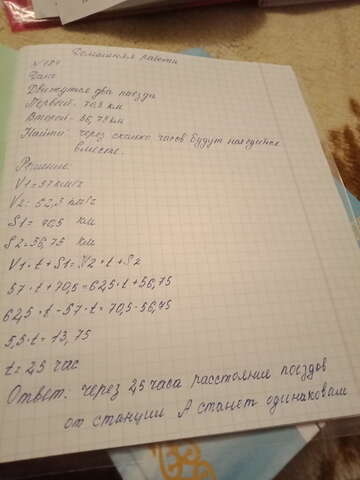 Домашняя работа
N 181
Дано
Движутся два поезда
Первый - 70,5 км
Второй - 56,75 км
Найти: через сколько часов будут находится
вместе.
Решение
V1 = 57 км/ч
V2 = 62,5 км/ч
S1 = 70,5 км
S2 = 56,75 км
V1 · t + S1 = V2 · t + S2
57 · t + 70,5 = 62,5 · t + 56,75
62,5 · t - 57 · t = 70,5 - 56,75
5,5 t = 13,75
t = 2,5 час
Ответ: через 2,5 часа расстояние поездов
от станции А станет одинаковым